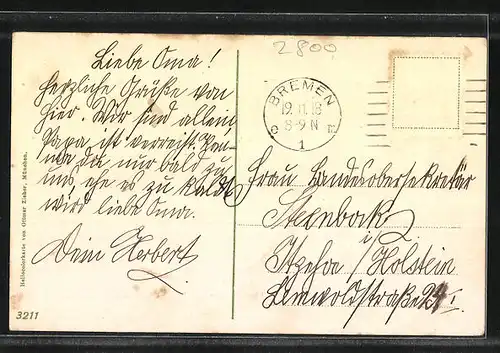 2800
Liebe Oma!
herzliche Grüße von
hier. Wir sind allein,
Papa ist verreist. Kom-
me du nur bald zu
uns, ehe es zu kalt
wird liebe Oma.
Dein Herbert
BREMEN
19.11.18
8-9 N
1
Frau Landesobersekretär
Steinbock
i/
Itzehoe i/ Holstein
24 I.
Heliocolorkarte von Ottmar Zieher, München.
3211